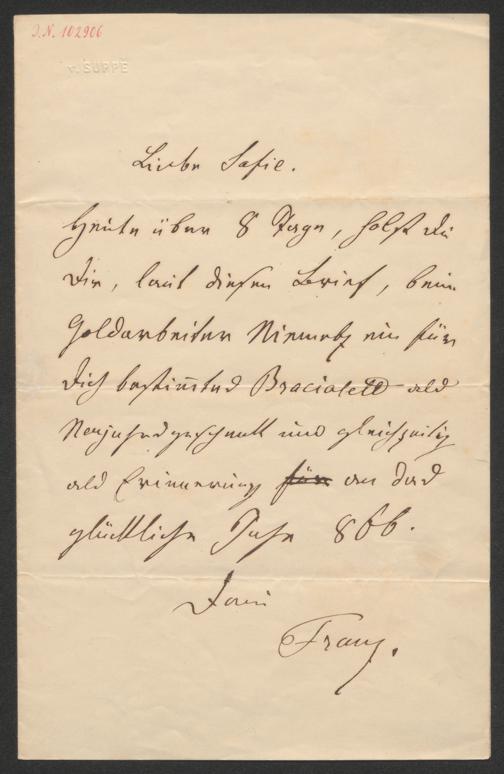 J.N. 102906
v. SUPPÉ
Liebe Sofie.
Heute über 8 Tage, holst du
Dir, laut diesen Brief, beim
Goldarbeiter Niemetz ein für
Dich bestimmtes Bracialett als
Neujahrsgeschenk und gleichzeitig
als Erinnerung für an das
glückliche Jahr 866.
Dein
Franz.